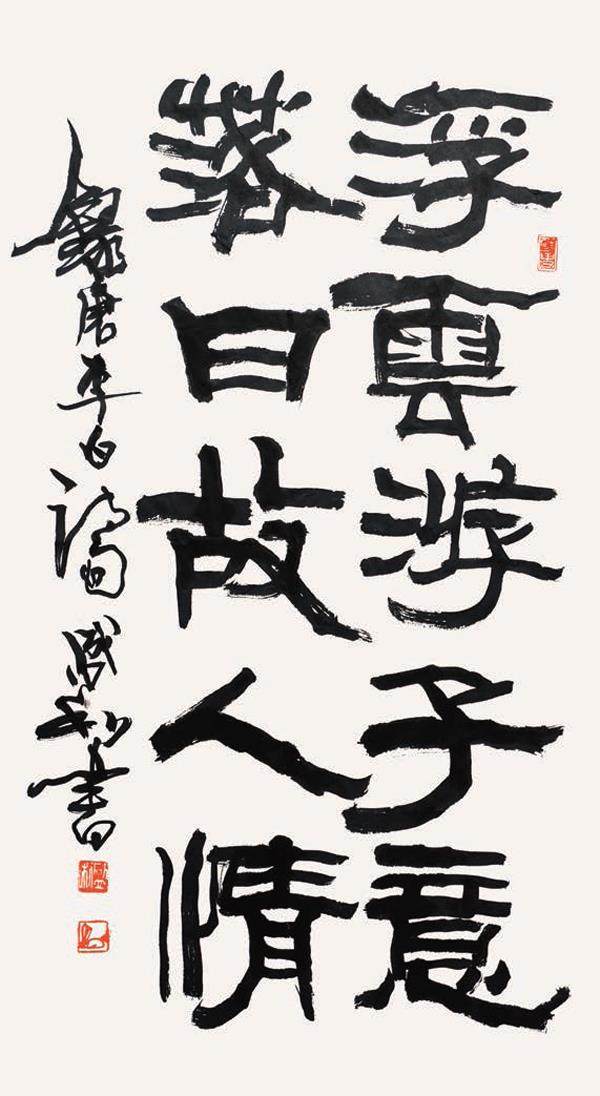 浮雲游子意
落日故人情
錄唐李白詩 書